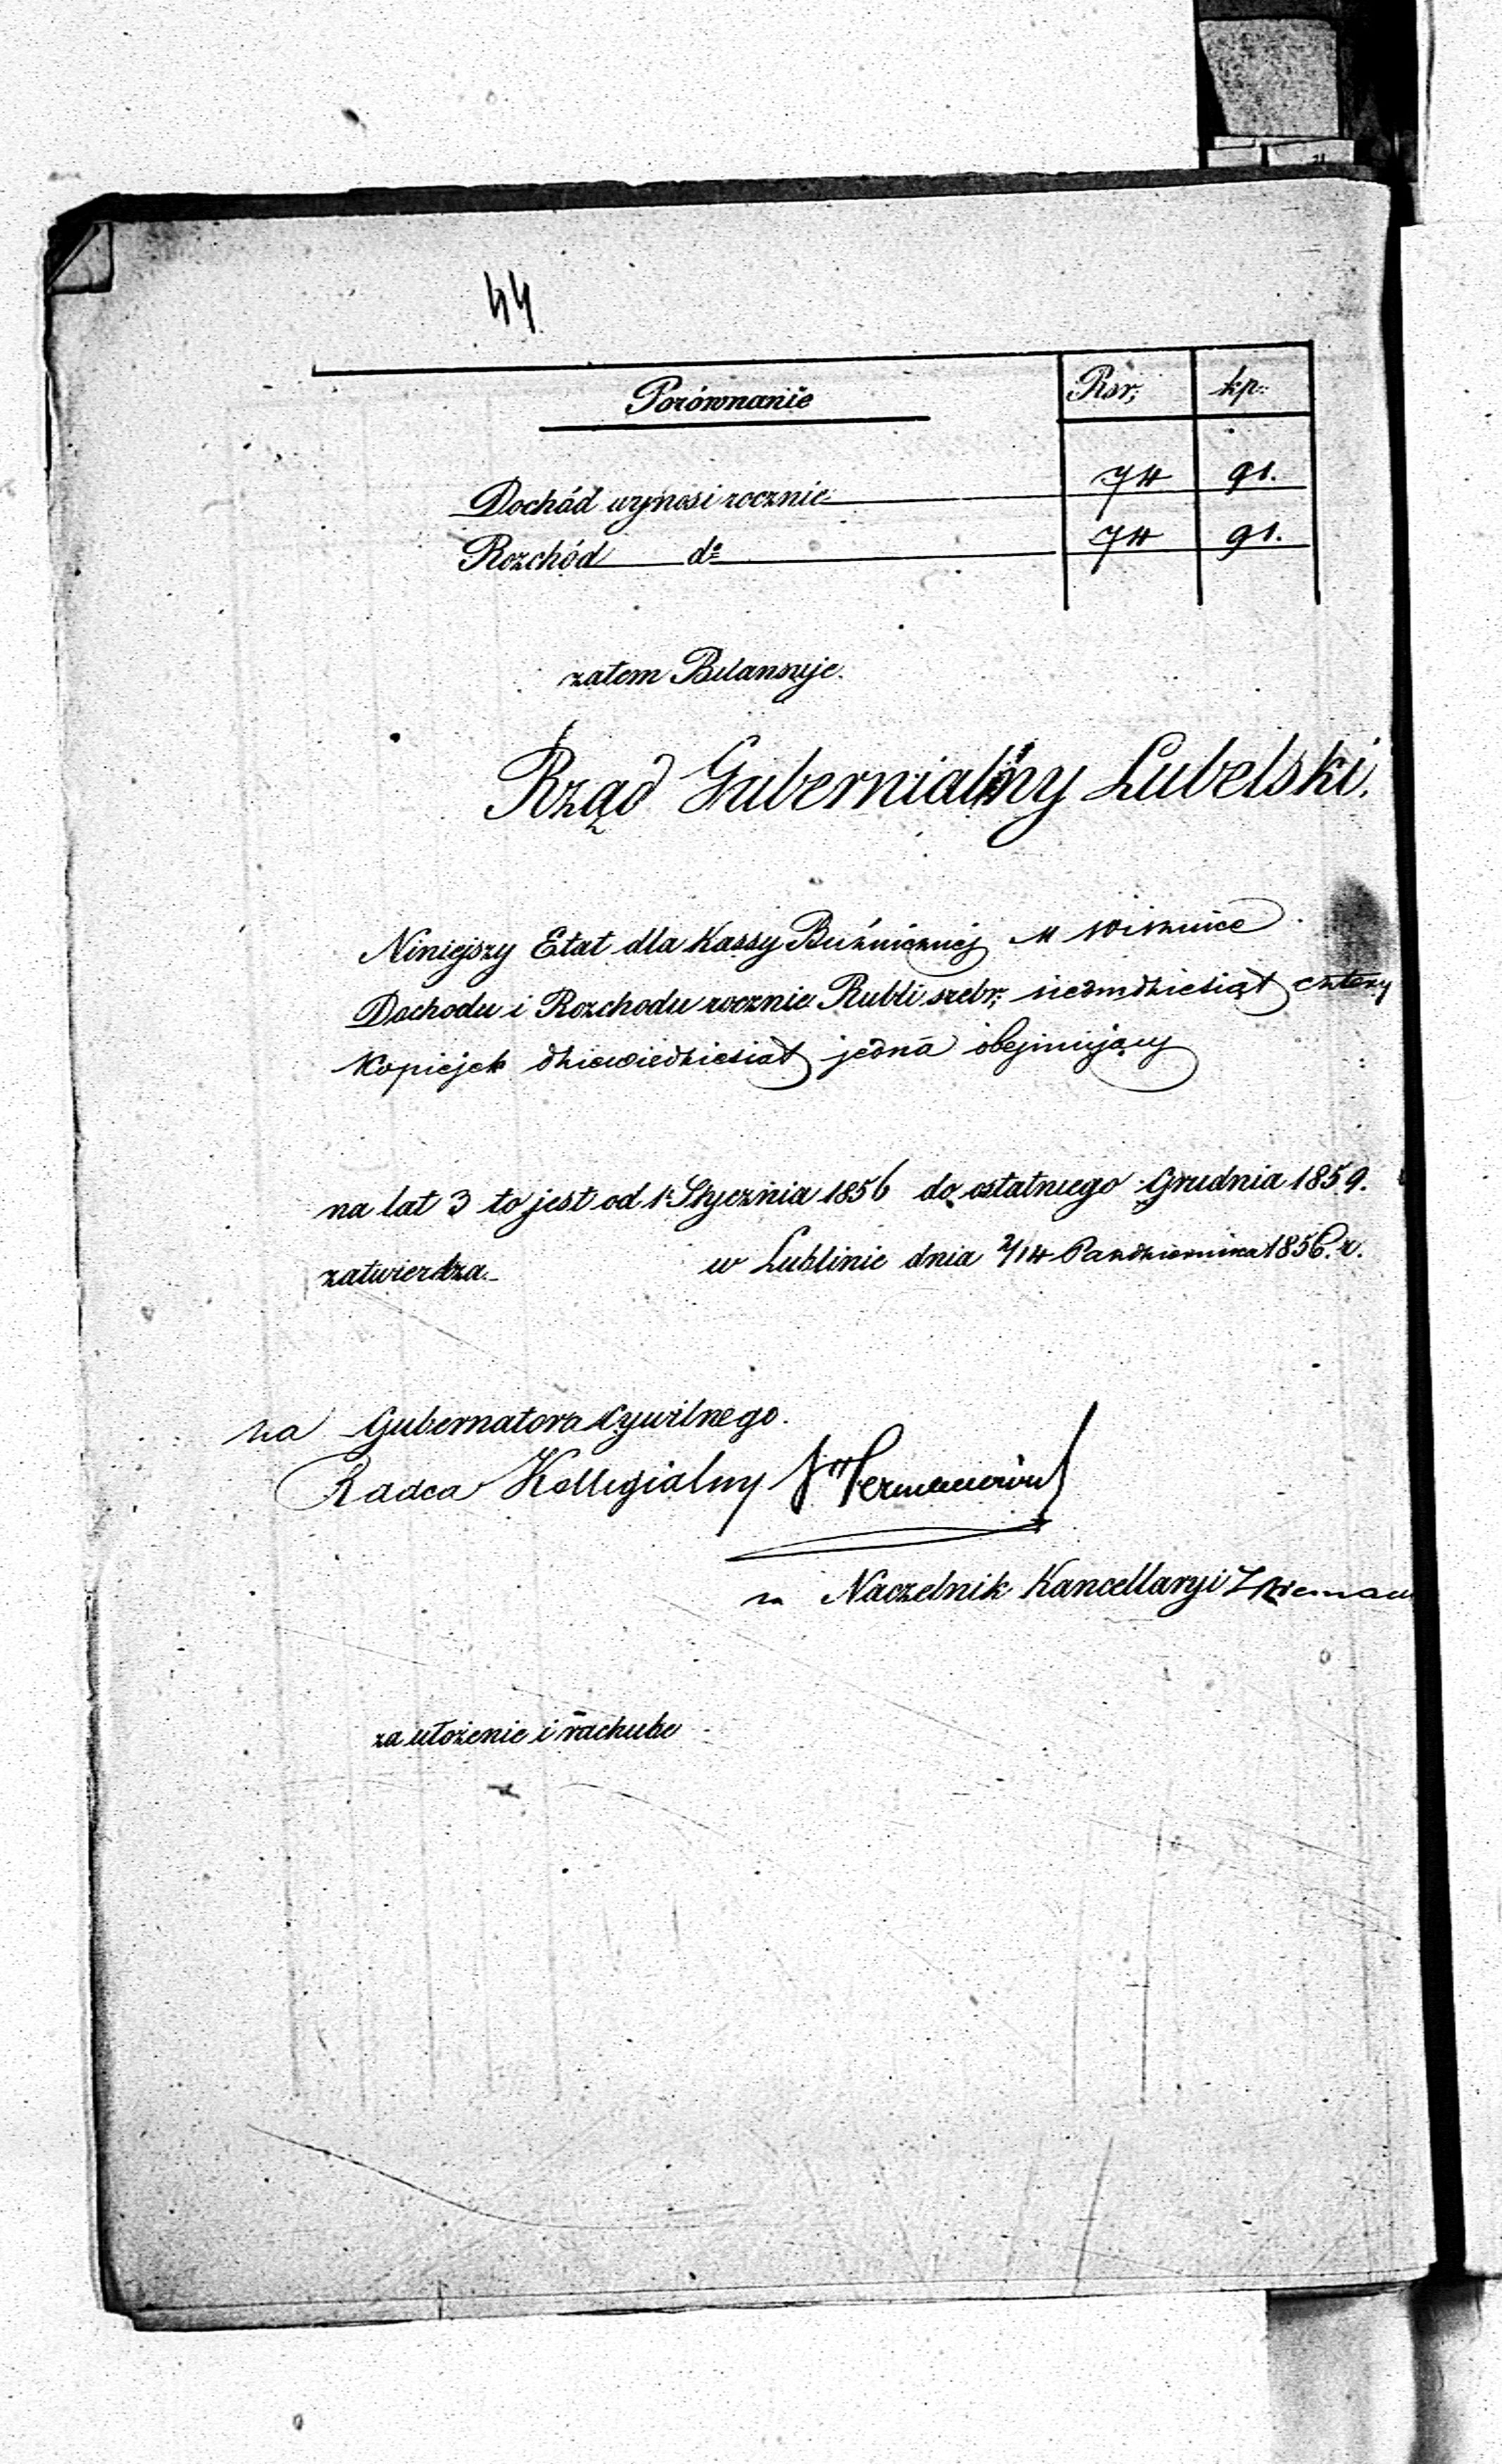 44
Porównanie Rsr; kp:
Dochód wynosi rocznie 74 91.
Rozchód do 74 91.
zatem Bilansuje.
Rząd Gubernialny Lubelski.
Niniejszy Etat dla Kassy Bużniczney w Wisznice
Dochodu i Rozchodu rocznie Rubli srebr; siedmdziesiąt cztery
Kopiejek dziewiedziesiąt jedna obejmujący
na lat 3 to jest od 1 Stycznia 1856 do ostatniego Grudnia 1859.
zatwierdza. w Lublinie dnia 2/14 Pazdziernika 1856. r.
za Gubernatora Cywilnego.
Radca Kollegialny
za Naczelnik Kancellaryi
za ułożenie i rachube